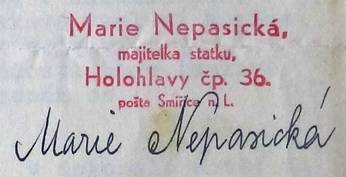 Marie Nepasická,
majitelka statku,
Holohlavy čp. 36.
pošta Smiřice n. L.
Marie Nepasická